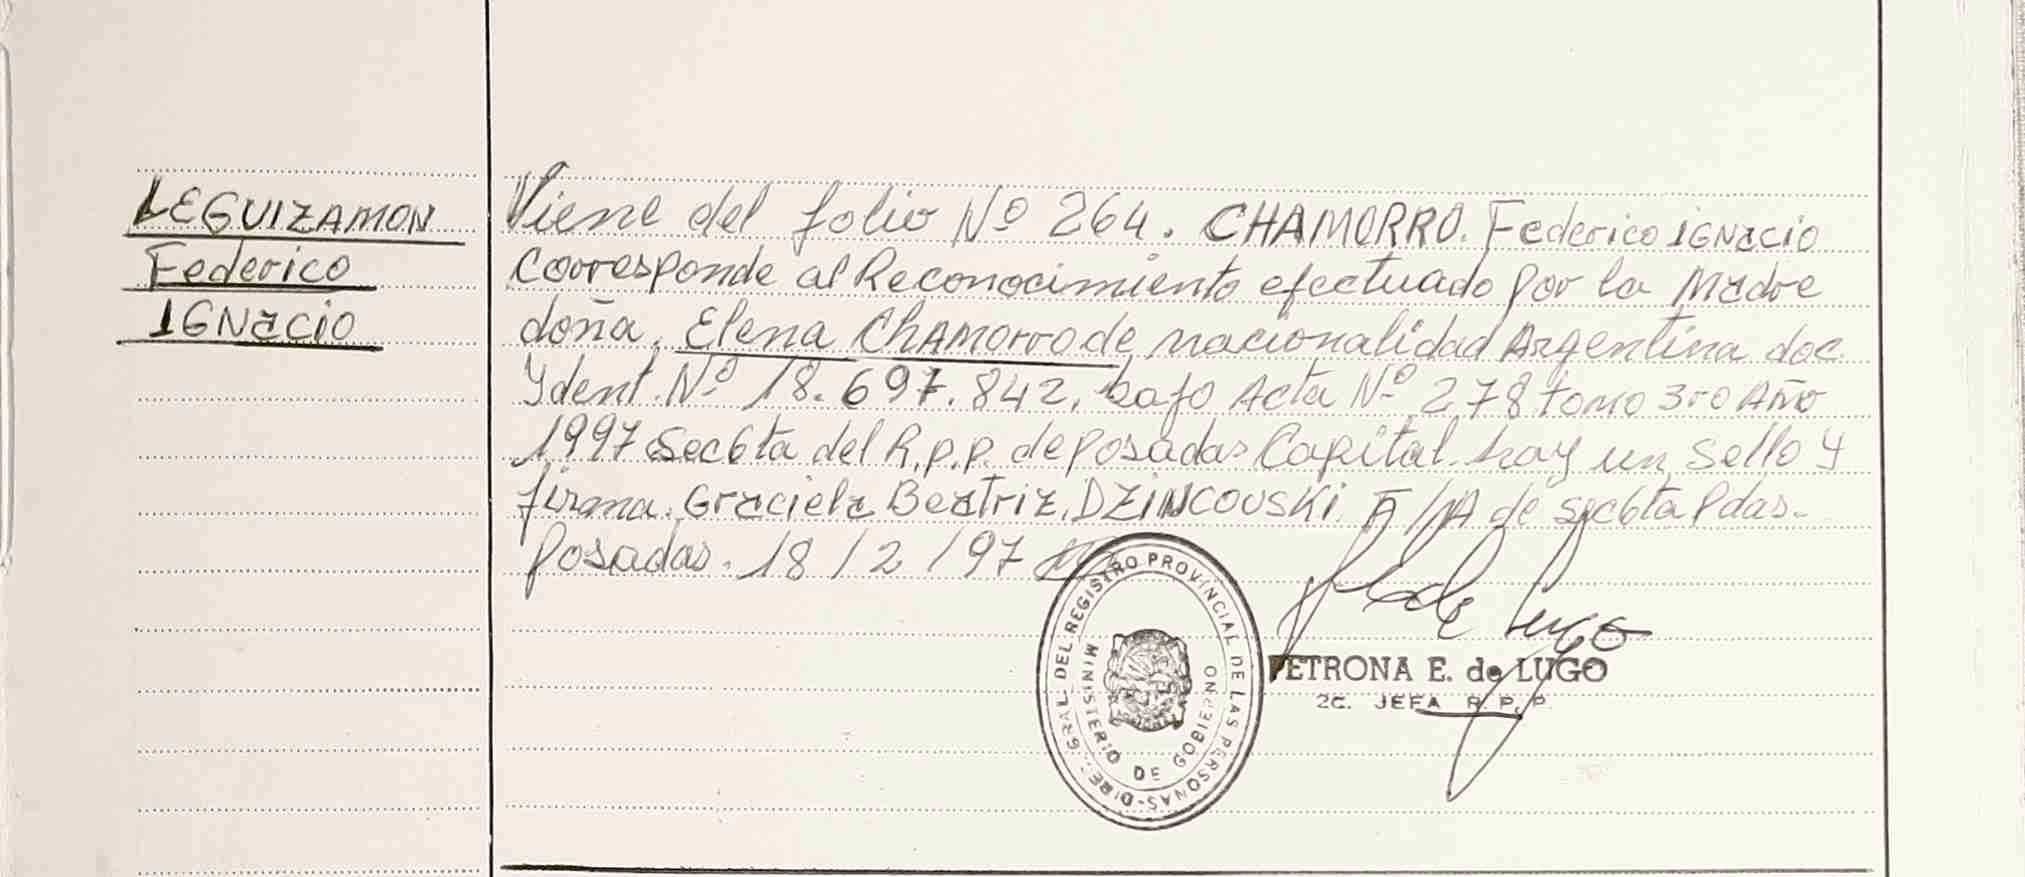 LEGUIZAMON
Federico
IGNacio
Viene del folio Nº 264. CHAMORRO. Federico IGNacio
Corresponde al Reconocimiento efectuado por la Madre
doña. Elena Chamorro de nacionalidad Argentina doc
Ydent. Nº 18.697.842, bajo Acta Nº 278 tomo 3ro Año
1997 Sec6ta del R.P.P. de Posadas Capital. hay un sello y
firma. Graciela Beatriz DZINCOUSKI. de sec6ta Pdas.
Posadas. 18/2/97
DIREC. GRAL. DEL REGISTRO PROVINCIAL DE LAS PERSONAS-
MINISTERIO DE GOBIERNO
de Lugo
PETRONA E. de LUGO
2C. JEFA R. P. P.